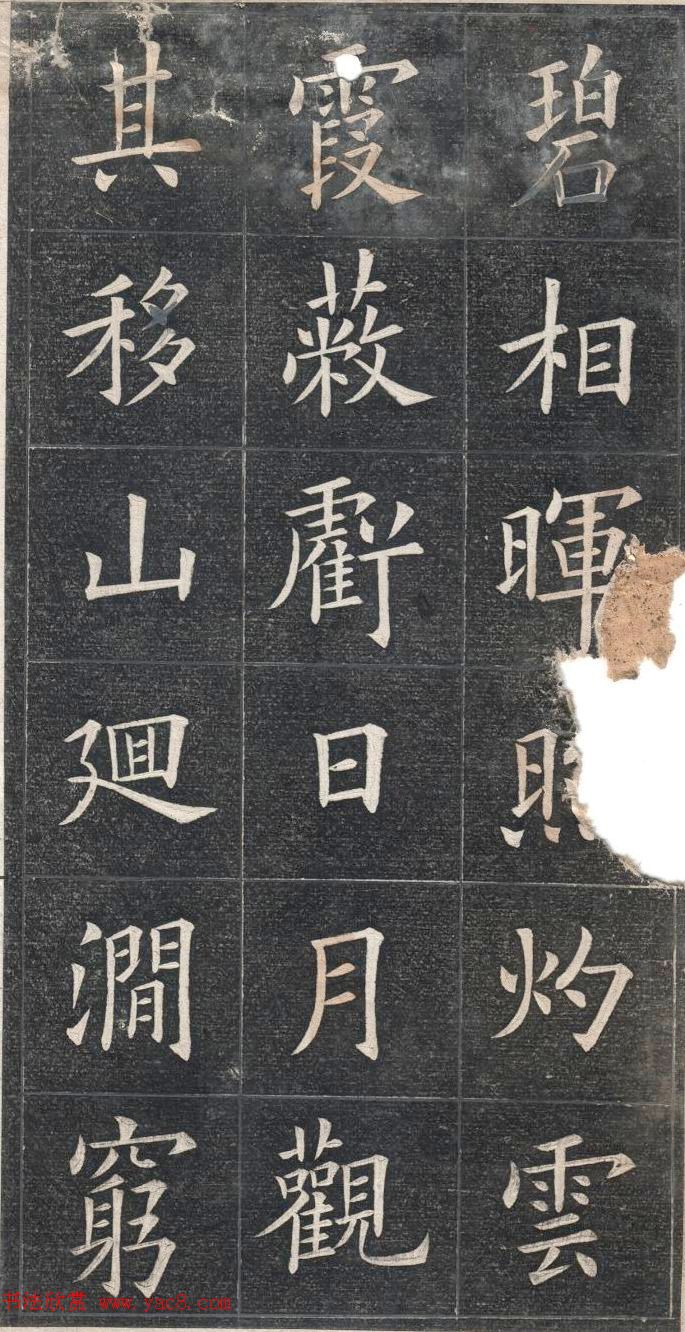 碧相暉照灼雲
霞蔽虧日月觀
其移山廻澗窮
书法欣赏 www.yac8.com